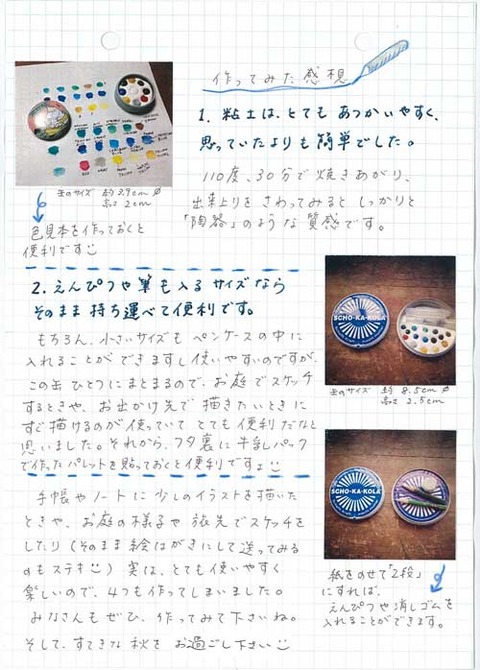 作ってみた感想
1. 粘土は、とても あつかいやすく、
思っていたよりも簡単でした。
110度、30分で焼きあがり、
出来上りを さわってみると しっかりと
「陶器」のような 質感です。
缶のサイズ 約3.9cm∅
高さ 2cm
色見本を作っておくと
便利です
2. えんぴつや筆も入るサイズなら
そのまま持ち運べて便利です。
もちろん、小さいサイズも ペンケースの中に
入れることができますし使いやすいのですが、
この缶ひとつにまとまるので、お庭でスケッチ
するときや、お出かけ先で描きたいときに
すぐ描けるのが使っていて とても便利だなと
思いました。それから、フタ裏に牛乳パック
で作ったパレットを貼っておくと便利ですよ
SCHO-KA-KOLA
缶のサイズ 約8.5cm∅
高さ2.5cm
SCHO-KA-KOLA
SCHO-KA-KOLA
紙をのせて「2段」
にすれば、
えんぴつや消しゴムを
入れることができます。
手帳やノートに少しのイラストを描いた
ときや、お庭の様子や旅先でスケッチを
したり(そのまま絵はがきにして送ってみる
のもステキ)実は、とても使いやすく
楽しいので、4つも作ってしまいました。
みなさんもぜひ、作ってみて下さいね。
そして、すてきな秋を お過ごし下さい